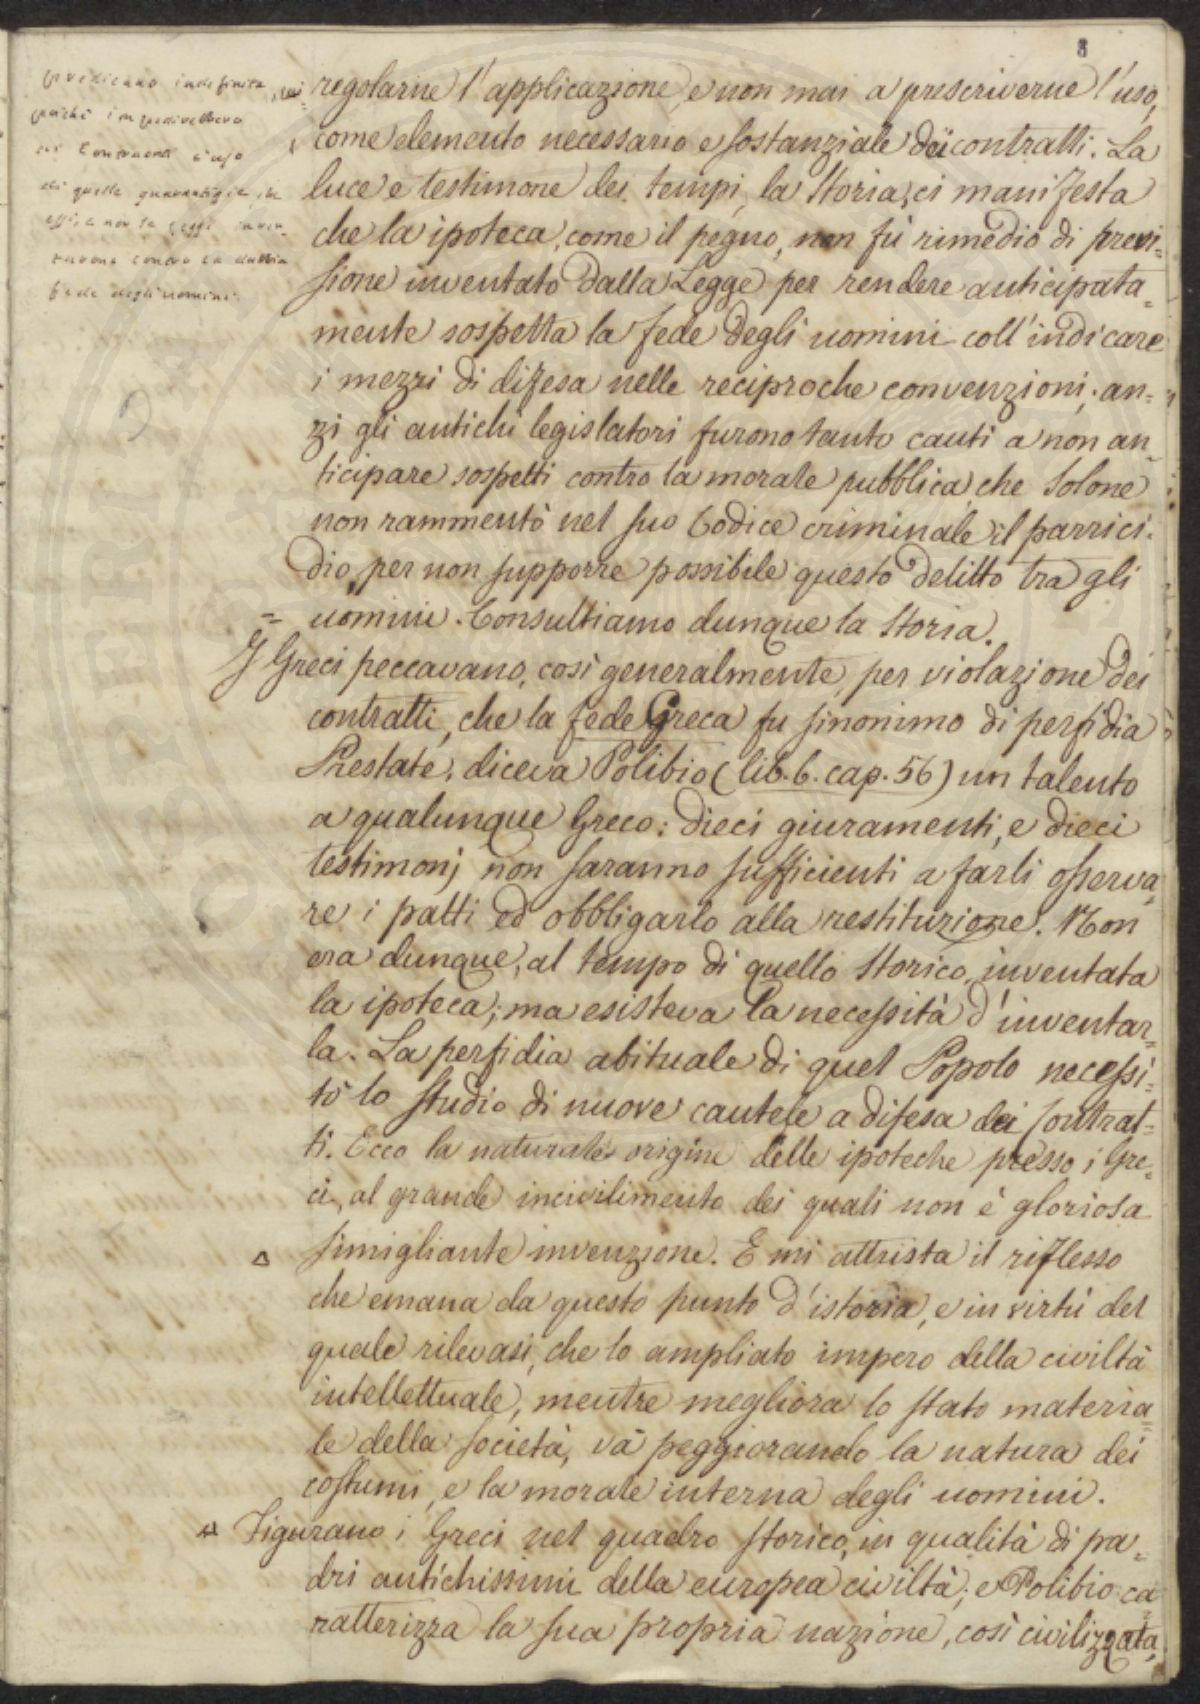 8
fede degli uomini.
regolarne l'applicazione, e non mai a prescriverne l'uso,
come elemento necessario e sostanziale dei contratti. La
luce e testimone dei tempi, la Storia, ci manifesta
che la ipoteca, come il pegno, non fù rimedio di previ=
sione inventato dalla Legge per rendere anticipata=
mente sospetta la fede degli uomini coll'indicare
i mezzi di difesa nelle reciproche convenzioni; an=
zi gli antichi legislatori furono tanto cauti a non an=
ticipare sospetti contro la morale pubblica, che Solone
non rammentò nel suo Codice criminale il parrici=
dio, per non supporre possibile questo delitto tra gli
= uomini. Consultiamo dunque la Storia.
I Greci peccavano, così generalmente, per violazione dei
contratti, che la fede Greca fu sinonimo di perfidia
Prestate, diceva Polibio (lib. 6. cap. 56) un talento
a qualunque Greco: dieci giuramenti, e dieci
testimonj non saranno sufficienti a farli osserva=
re i patti ed obbligarlo alla restituzione. Non
era dunque, al tempo di quello Storico, inventata
la ipoteca; ma esisteva la necessità d'inventar=
la. La perfidia abituale di quel Popolo necessi=
tò lo studio di nuove cautele a difesa dei Contrat=
ti. Ecco la naturale origine delle ipoteche presso i Gre=
ci, al grande incivilimento dei quali non è gloriosa
simigliante invenzione. E mi attrista il riflesso
che emana da questo punto d'istoria, e in virtù del
quale rilevasi, che lo ampliato impero della civiltà
intellettuale, mentre megliora lo stato materia=
le della società, và peggiorando la natura dei
costumi, e la morale interna degli uomini.
Figurano i Greci nel quadro storico, in qualità di pa=
dri antichissimi della europea civiltà; e Polibio ca=
ratterizza la sua propria nazione, così civilizzata,